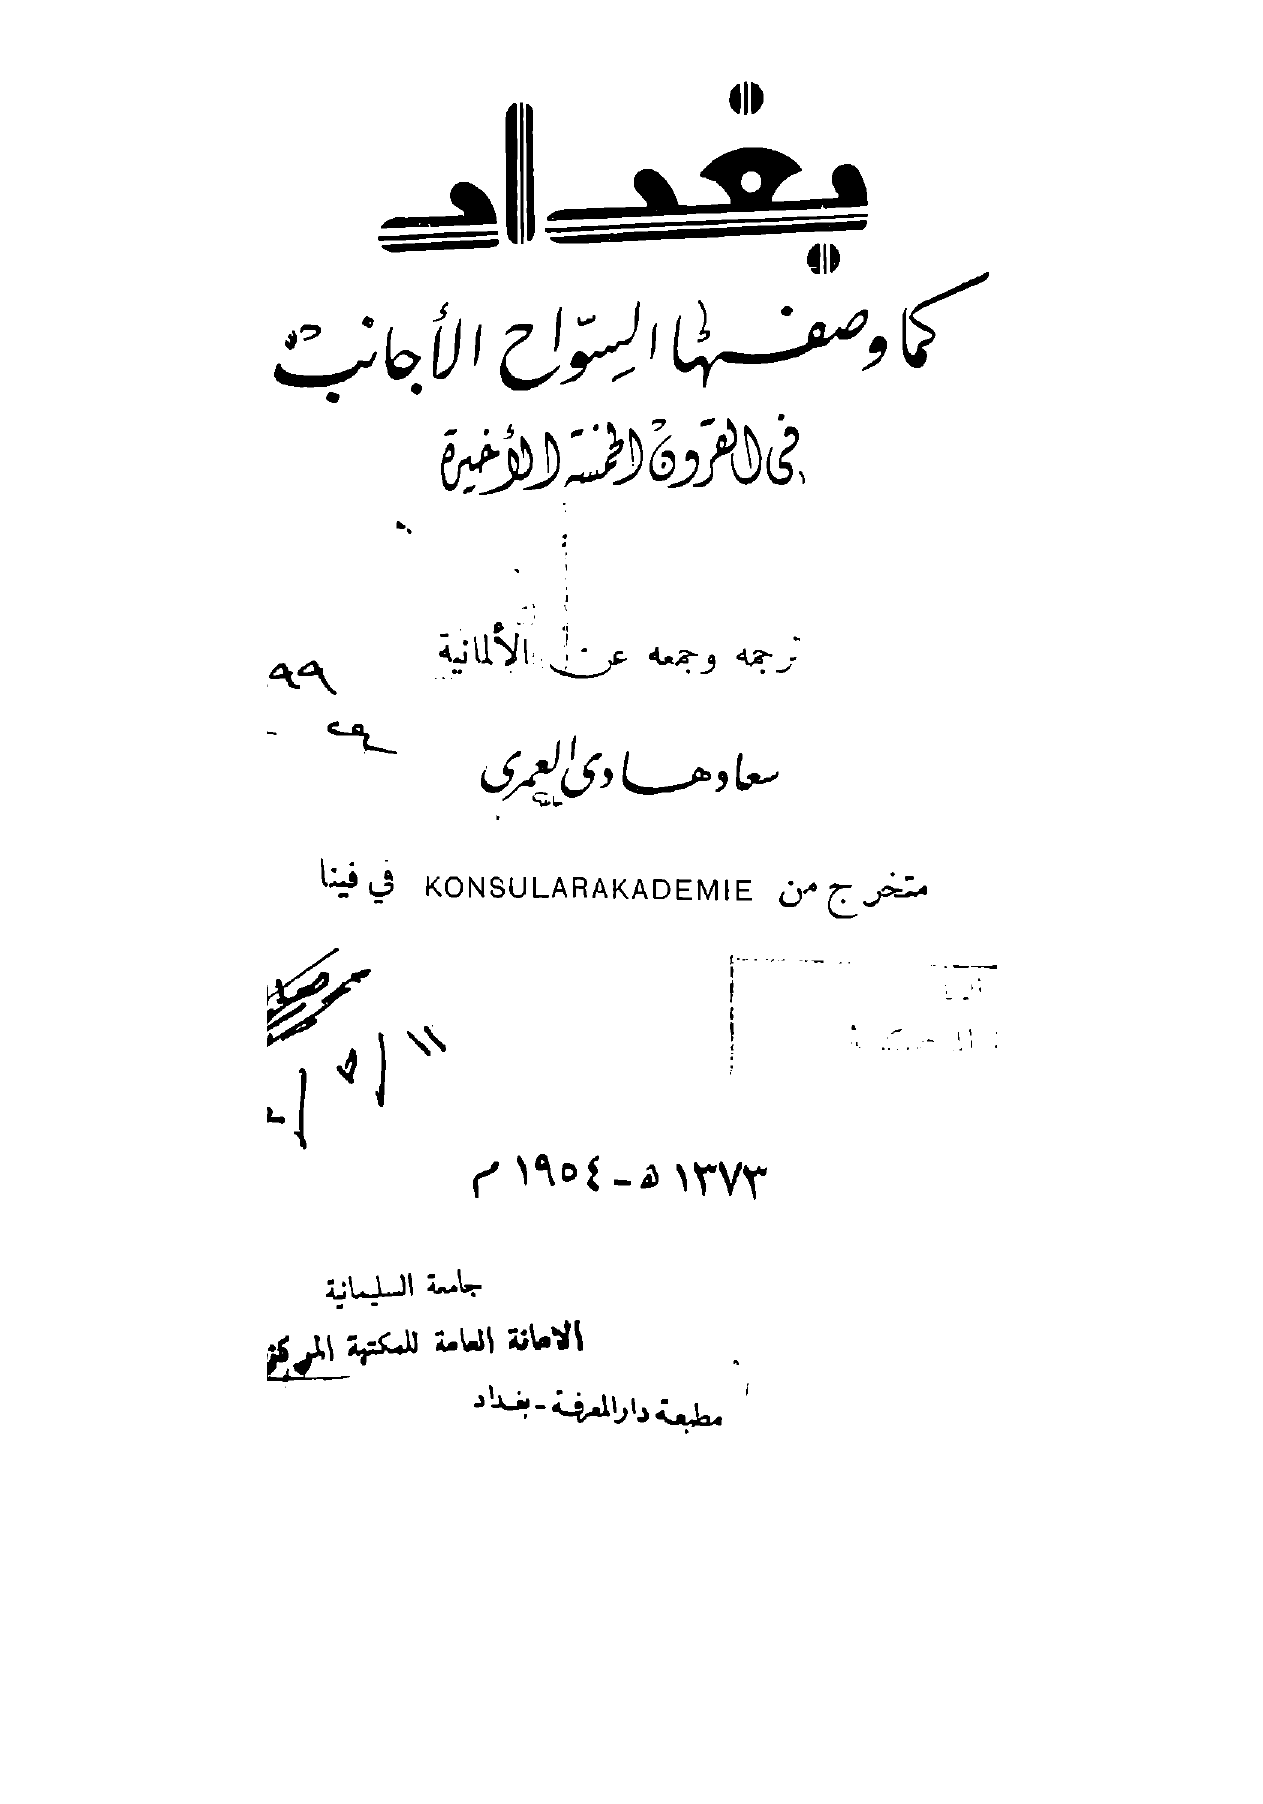 بغداد
كما وصفها السوّاح الأجانب
في القرون الخمسة الأخيرة
ترجمه وجمعه عن الألمانية
٩٩
سعاد هادي العمري
متخرج من KONSULARAKADEMIE في فينا
١١/٥/
١٣٧٣ هـ - ١٩٥٤ م
جامعة السليمانية
الامانة العامة للمكتبة المركز
مطبعة دار المعرفة - بغداد